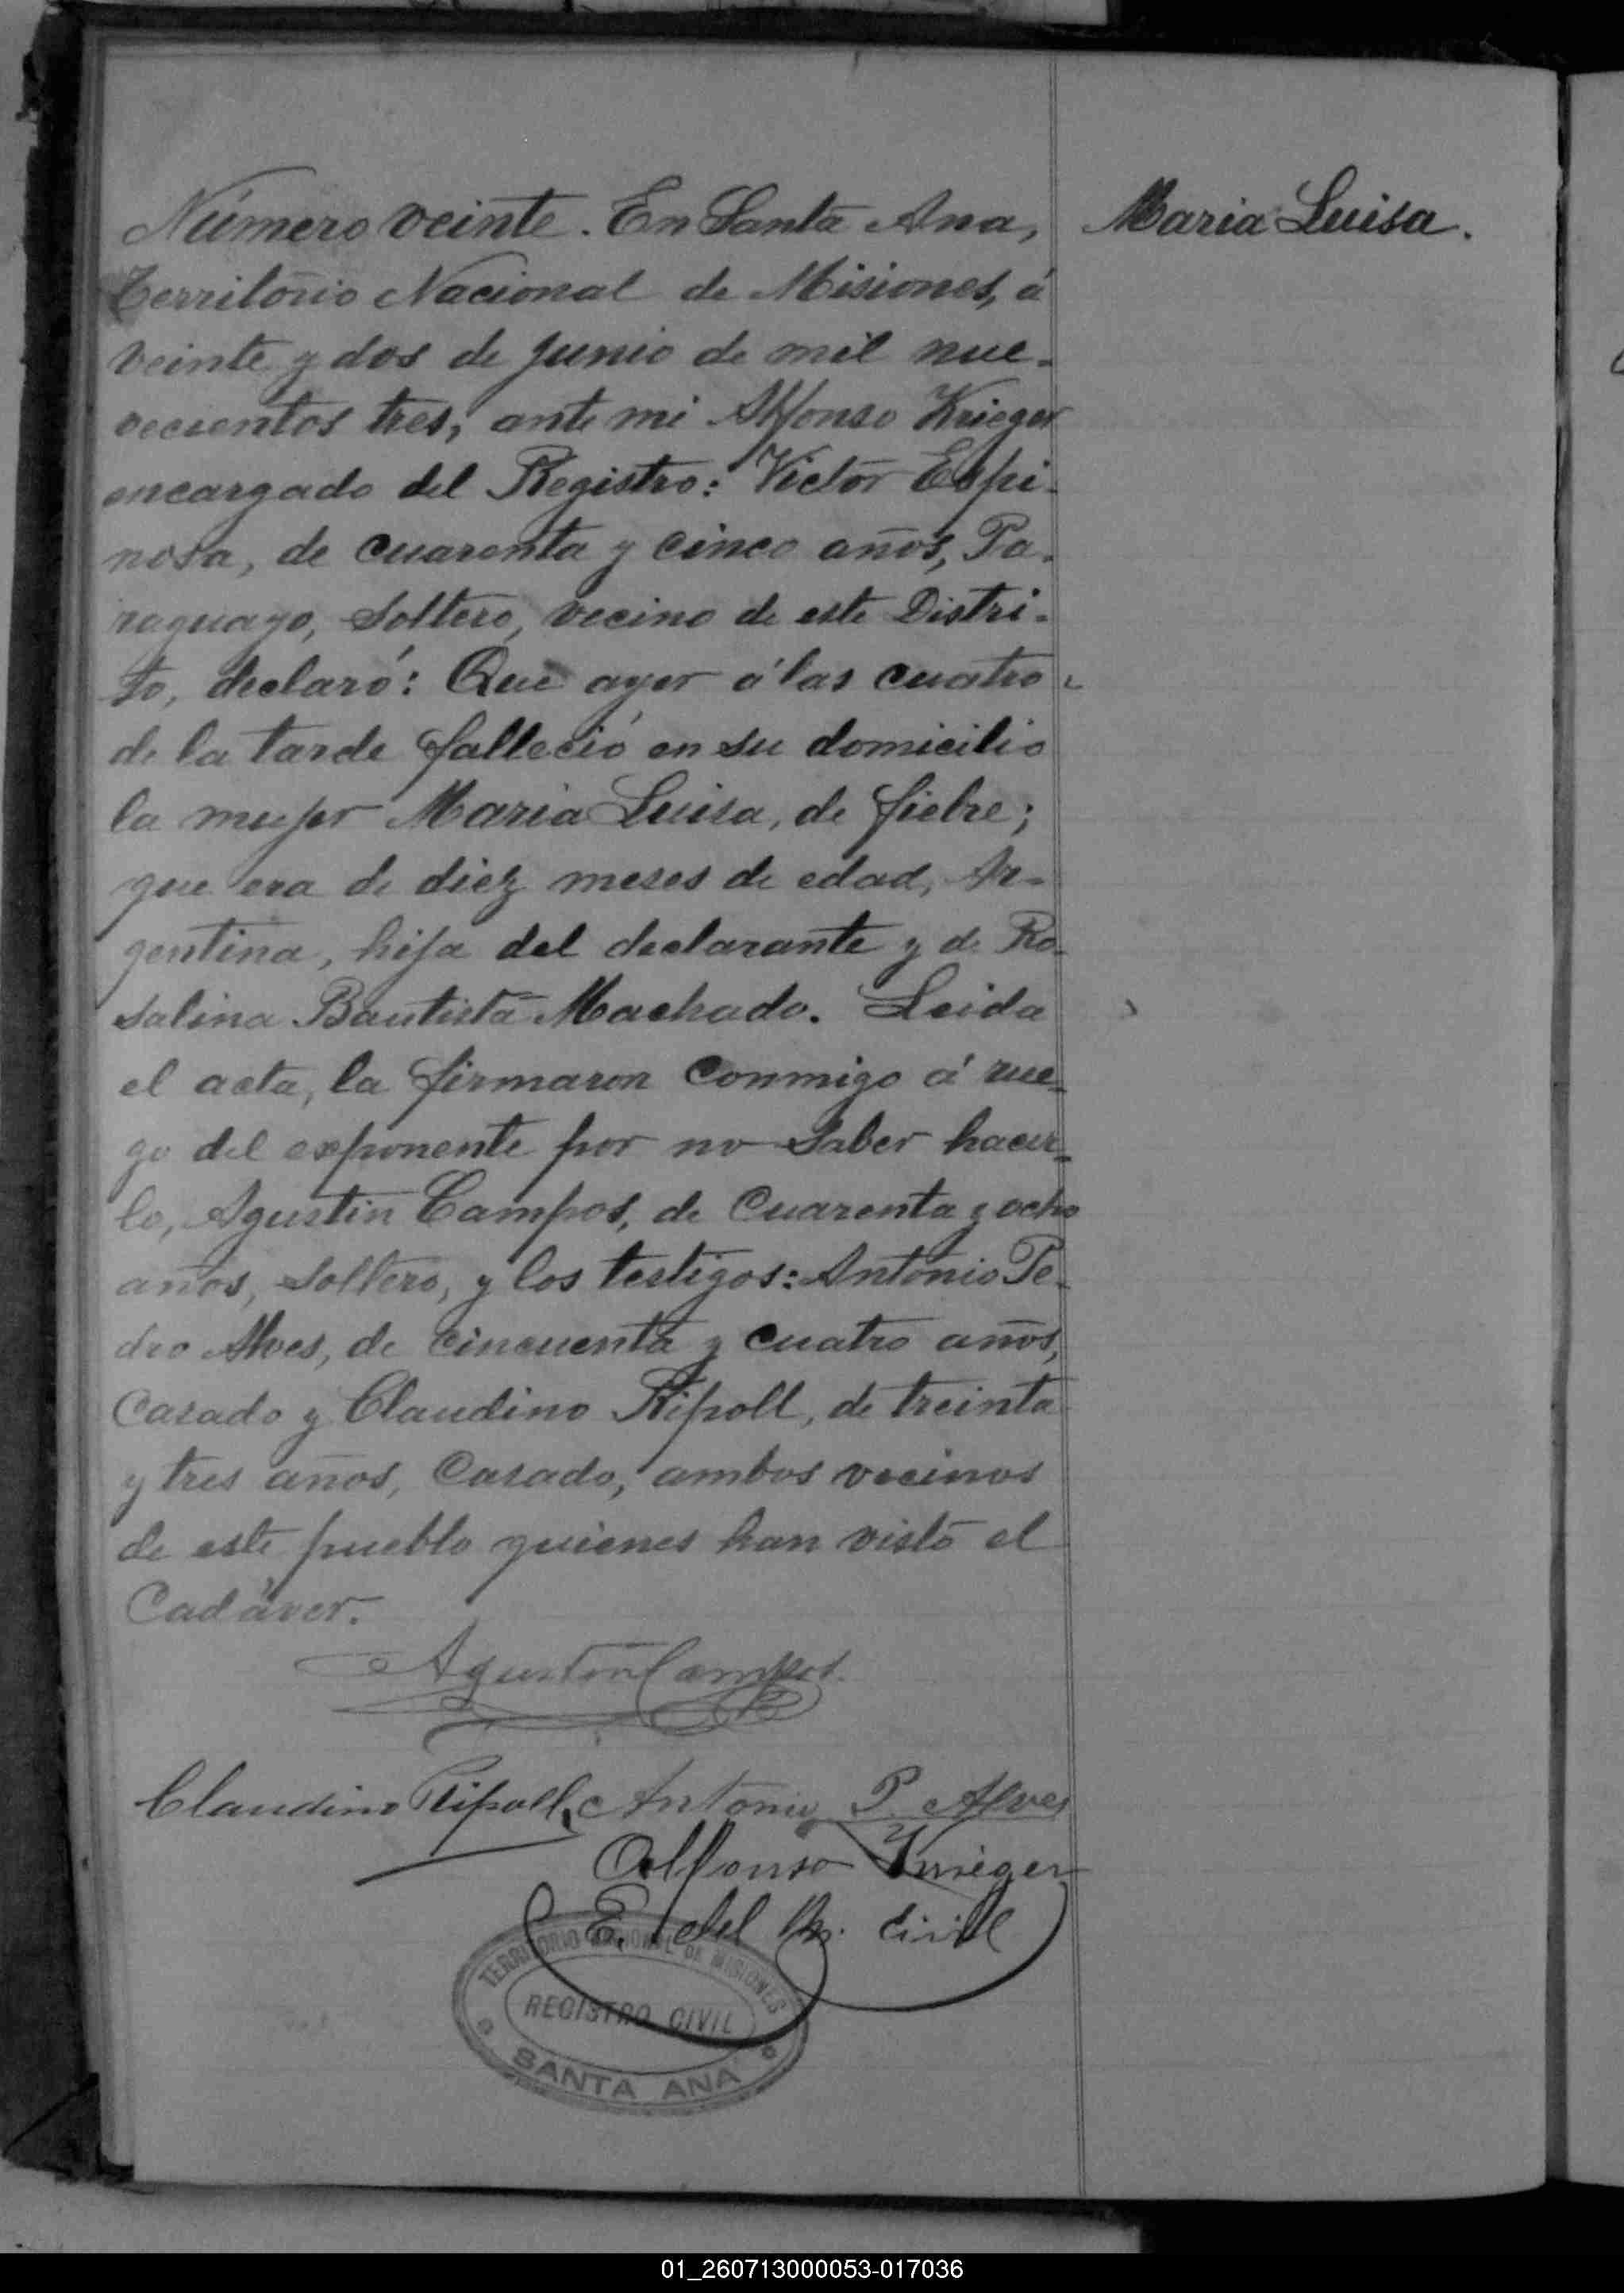 Número veinte. En Santa Ana,
Maria Luisa.
Territorio Nacional de Misiones, á
veinte y dos de Junio de mil nue-
vecientos tres, ante mi Alfonso Krieger
encargado del Registro: Victor Espi-
nosa, de cuarenta y cinco años, Pa-
raguayo, soltero, vecino de este Distri-
to, declaró: Que ayer á las cuatro
de la tarde falleció en su domicilio
la mujer Maria Luisa, de fiebre;
que era de diez meses de edad, Ar-
gentina, hija del declarante y de Ro-
salina Bautista Machado. Leida
el acta, la firmaron conmigo á rue-
go del exponente por no saber hacer-
lo, Agustin Campos, de cuarenta y ocho
años, soltero, y los testigos: Antonio Pe-
dro Alves, de cincuenta y cuatro años,
casado y Claudino Ripoll, de treinta
y tres años, casado, ambos vecinos
de este pueblo quienes han visto el
Cadáver.
Agustin Campos
Claudino Ripoll Antonio P. Alves
Alfonso Krieger
E. del R. Civil
TERRITORIO NACIONAL DE MISIONES
REGISTRO CIVIL
SANTA ANA
01_260713000053-017036